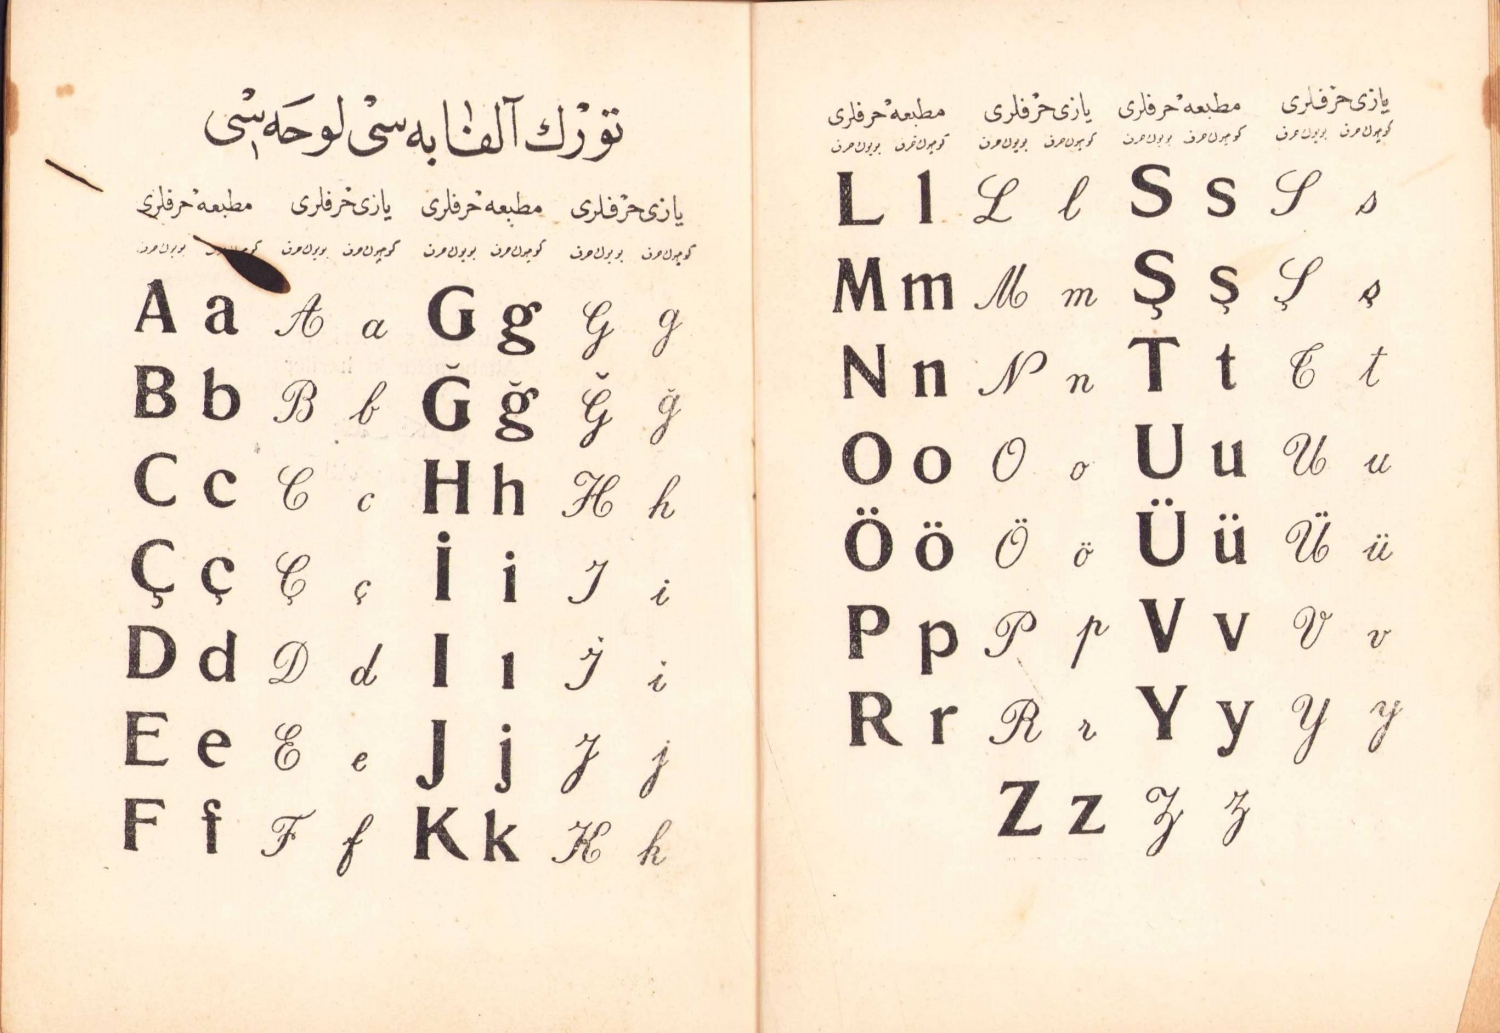 تورك آلفابه سی لوحه سی
یازی حرفلری مطبعه حرفلری یازی حرفلری مطبعه حرفلری
كوچوك حرف بویوك حرف كوچوك حرف بویوك حرف كوچوك حرف بویوك حرف كوچوك حرف بویوك حرف
A a A a G g G g
B b B b Ğ ğ Ğ ğ
C c C c H h H h
Ç ç Ç ç İ i I i
D d D d I ı İ i
E e E e J j J j
F f F f K k K k
یازی حرفلری مطبعه حرفلری یازی حرفلری مطبعه حرفلری
كوچوك حرف بویوك حرف كوچوك حرف بویوك حرف كوچوك حرف بویوك حرف كوچوك حرف بویوك حرف
L l L l S s S s
M m M m Ş ş Ş ş
N n N n T t T t
O o O o U u U u
Ö ö Ö ö Ü ü Ü ü
P p P p V v V v
R r R r Y y Y y
Z z Z z